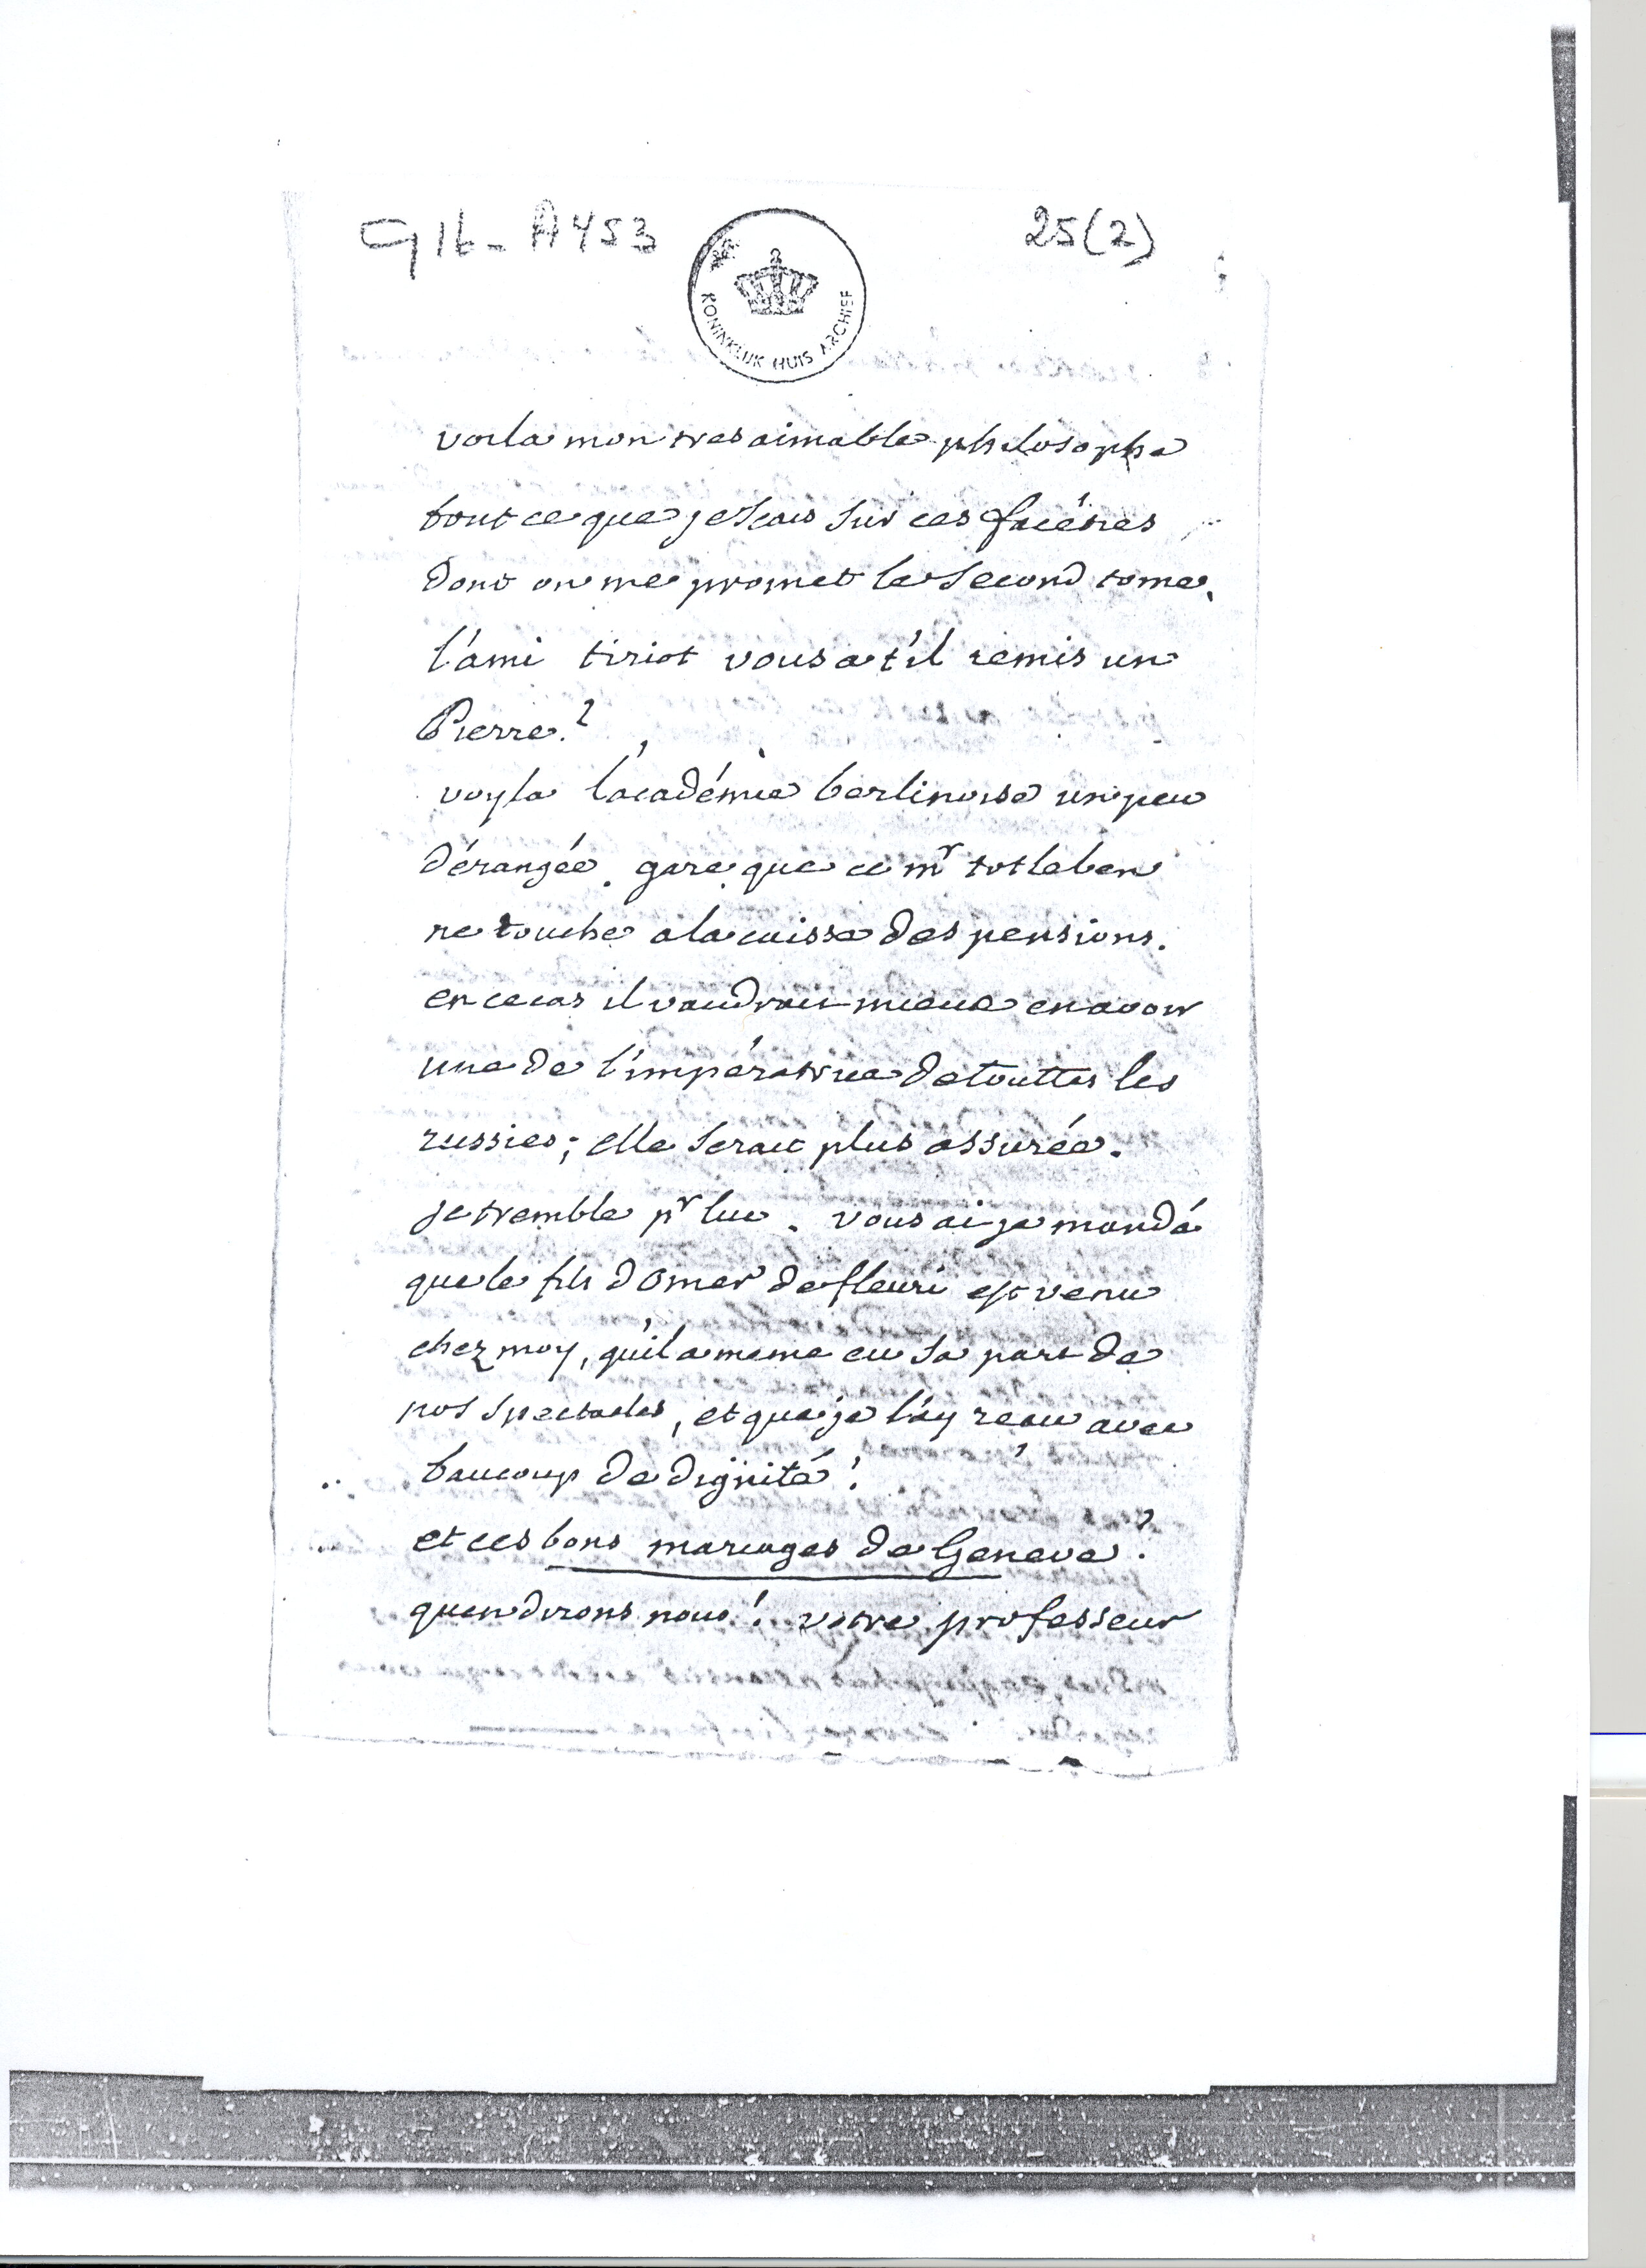 G16-A453
25(2)
KONINKLIJK HUIS ARCHIEF
voila mon tres aimable philosophe
tout ce que je scais sur ces facéties
dont on me promet le second tome.
l'ami tiriot vous a t'il remis un
Pierre?
voyla l'académie berlinoise un peu
dérangée. gare que ce mr totleben
ne touche a la caisse des pensions.
en ce cas il vaudrait mieux en avoir
une de l'impératrice de touttes les
russies; elle serait plus assurée.
je tremble pr luc. vous ai je mandé
que le fils d Omer de fleuri est venu
chez moy, qu'il a meme eu sa part de
nos spectacles, et que je l'ay receu avec
baucoup de dignité!
et ces bons mariages de Geneve?
quen dirons nous! votre professeur